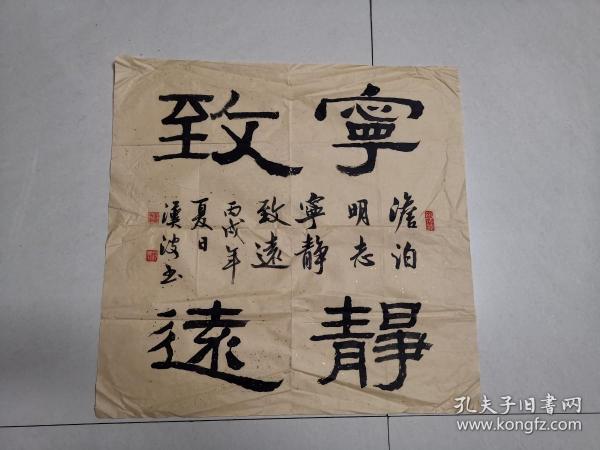 寧靜
致遠
澹泊
明志
寧靜
致遠
丙戌年
夏日
漢波书
孔夫子旧書网
www.kongfz.com